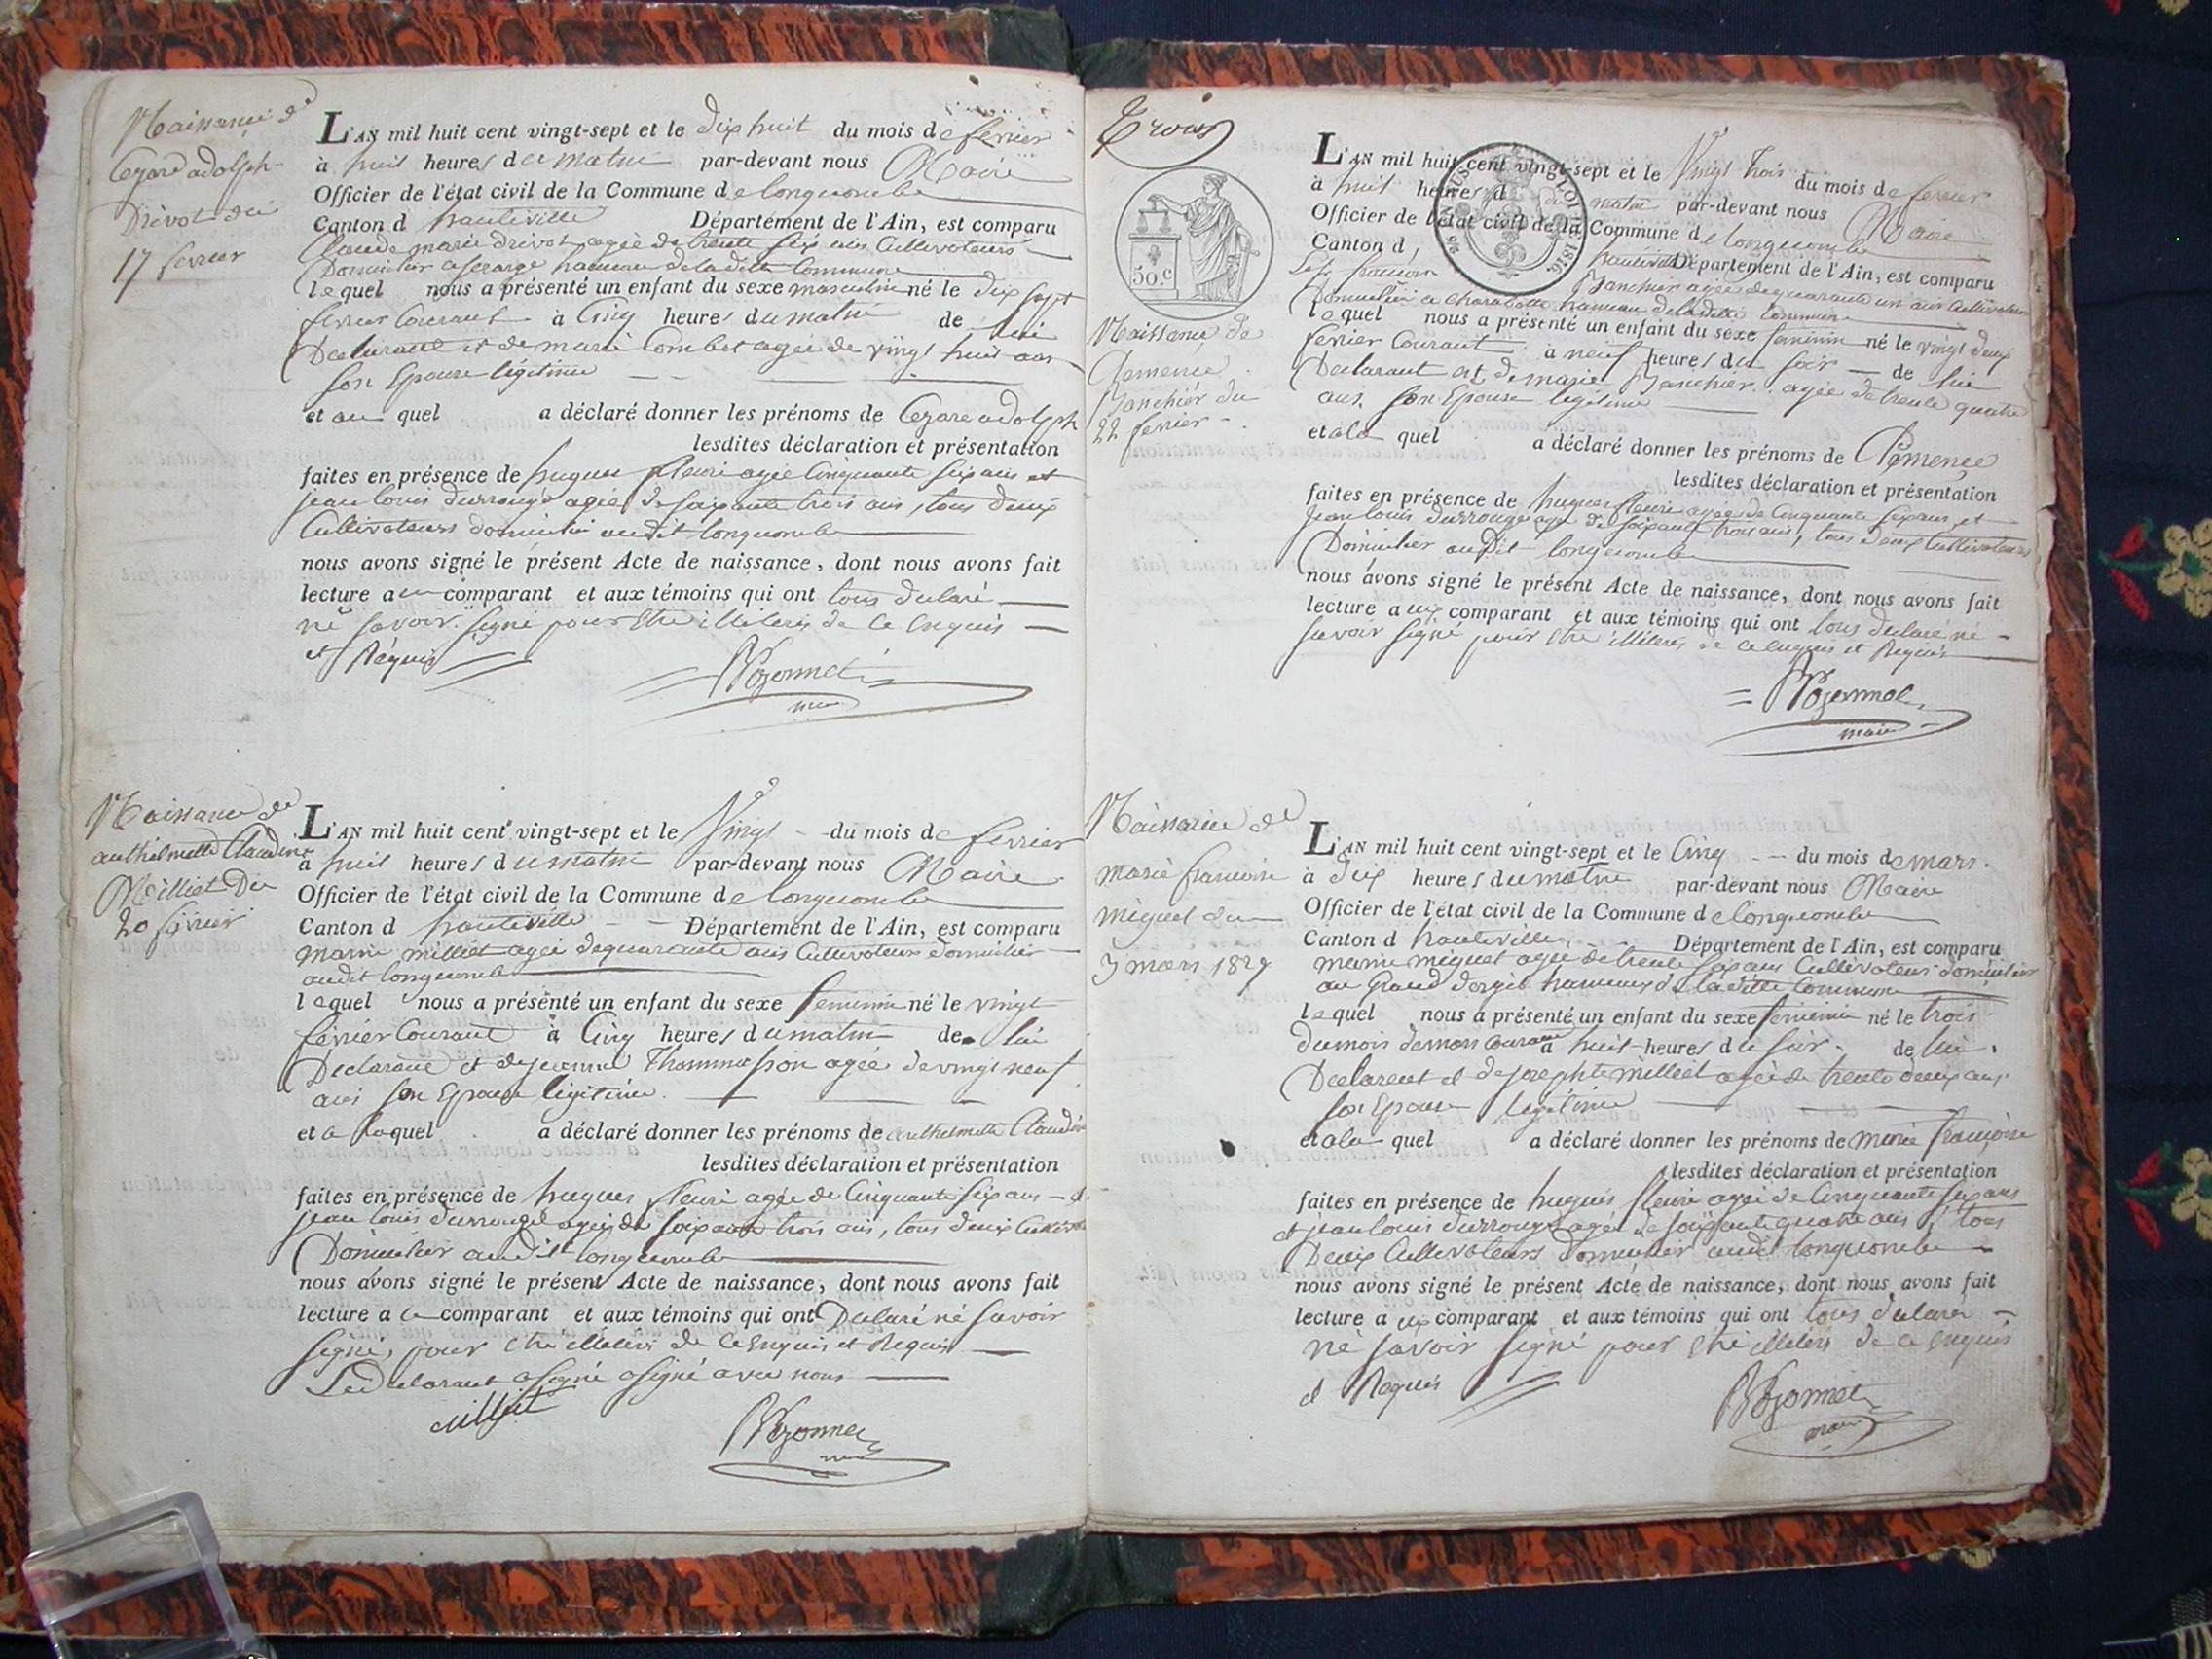 Naissance de
Cezard adolph
Drivot du
17 fevrier
L'AN mil huit cent vingt-sept et le dix huit du mois de fevrier
à huit heures du matin par-devant nous Maire
Officier de l'état civil de la Commune de longuecombe
Canton d hauteville Département de l'Ain, est comparu
Claude marie drivot agée de trente six ans Cultivateurs
Domicilier a hameau de la ditte Commune
lequel nous a présenté un enfant du sexe masculin né le dix sept
fevrier Courant à Cinq heures du matin de lui
Declarant et de marie Combet agée de vingt huit ans
son Epouse légitime
et au quel a déclaré donner les prénoms de Cezare adolph
lesdites déclaration et présentation
faites en présence de hugues fleuri agée Cinquante six ans et
jean louis durrouge agée de soixante trois ans, tous deux
Cultivateurs domicilié audit longuecombe
nous avons signé le présent Acte de naissance, dont nous avons fait
lecture au comparant et aux témoins qui ont tous declaré
né savoir signé pour etre illiteres de ce enquis
et Requis
Naissance de
anthelmette Claudine
Milliet Du
20 fevrier
L'AN mil huit cent vingt-sept et le Vingt du mois de fevrier
à huit heures du matin par-devant nous Maire
Officier de l'état civil de la Commune de longuecombe
Canton d hauteville Département de l'Ain, est comparu
marin milliet agée de quarante ans Cultivateurs domicilier
audit longuecombe
lequel nous a présenté un enfant du sexe feminin né le vingt
fevrier Courant à Cinq heures du matin de lui
Declarant et de jeanne Thommasson agée de vingt neuf
ans son Epouse légitime
et a laquel a déclaré donner les prénoms de anthelmette Claudine
lesdites déclaration et présentation
faites en présence de hugues fleuri agée de Cinquante six ans et
jean louis durrouge agée de soixante trois ans, tous deux
Domicilier audit longuecombe
nous avons signé le présent Acte de naissance, dont nous avons fait
lecture a ce comparant et aux témoins qui ont Declaré né savoir
signé, pour etre illiteres de ce enquis et Requis
Le declarant a signé a signé avec nous
milliet
Trois
50.c
Naissance de
Clemence
Banchier du
22 fevrier
L'AN mil huit cent vingt-sept et le Vingt Trois du mois de fevrier
à huit heures d du matin par-devant nous Maire
Officier de l'état civil de la Commune de longuecombe
Canton d hauteville Département de l'Ain, est comparu
francois Banchier agée de quarante un ans Cultivateur
Domicilier a Charabotte hameau de la ditte Commune
lequel nous a présenté un enfant du sexe feminin né le vingt deux
fevrier Courant à neuf heures du soir de lui
Declarant et de marie Banchier agée de trente quatre
ans, son Epouse légitime
et a la quel a déclaré donner les prénoms de Clemence
lesdites déclaration et présentation
faites en présence de hugues fleuri agée de Cinquante six ans et
jean louis durrouge agée de soixante trois ans, tous deux Cultivateurs
Domicilier audit longuecombe
nous avons signé le présent Acte de naissance, dont nous avons fait
lecture aux comparant et aux témoins qui ont tous declaré né
savoir signé pour etre illiteres de ce enquis et Requis
maire
Naissance de
marie francoise
miguet du
3 mars 1827
L'AN mil huit cent vingt-sept et le Cinq du mois de mars
à dix heures du matin par-devant nous Maire
Officier de l'état civil de la Commune de longuecombe
Canton d hauteville Département de l'Ain, est comparu
marin miguet agée de trente six ans Cultivateur domicilier
au Grand dergit hameau de la ditte Commune
lequel nous a présenté un enfant du sexe feminin né le trois
du mois de mars Courant à huit heures du soir de lui
Declarent et de josephte milliet agée de trente deux ans
son Epouse légitime
et a la quel a déclaré donner les prénoms de marie francoise
lesdites déclaration et présentation
faites en présence de hugues fleuri agée de Cinquante six ans
et jean louis durrouge agée de soixante quatre ans, tous
Deux Cultivateurs domicilier audit longuecombe
nous avons signé le présent Acte de naissance, dont nous avons fait
lecture aux comparant et aux témoins qui ont tous declarer
né savoir signé pour etre illiteres de ce enquis
et Requis
maire